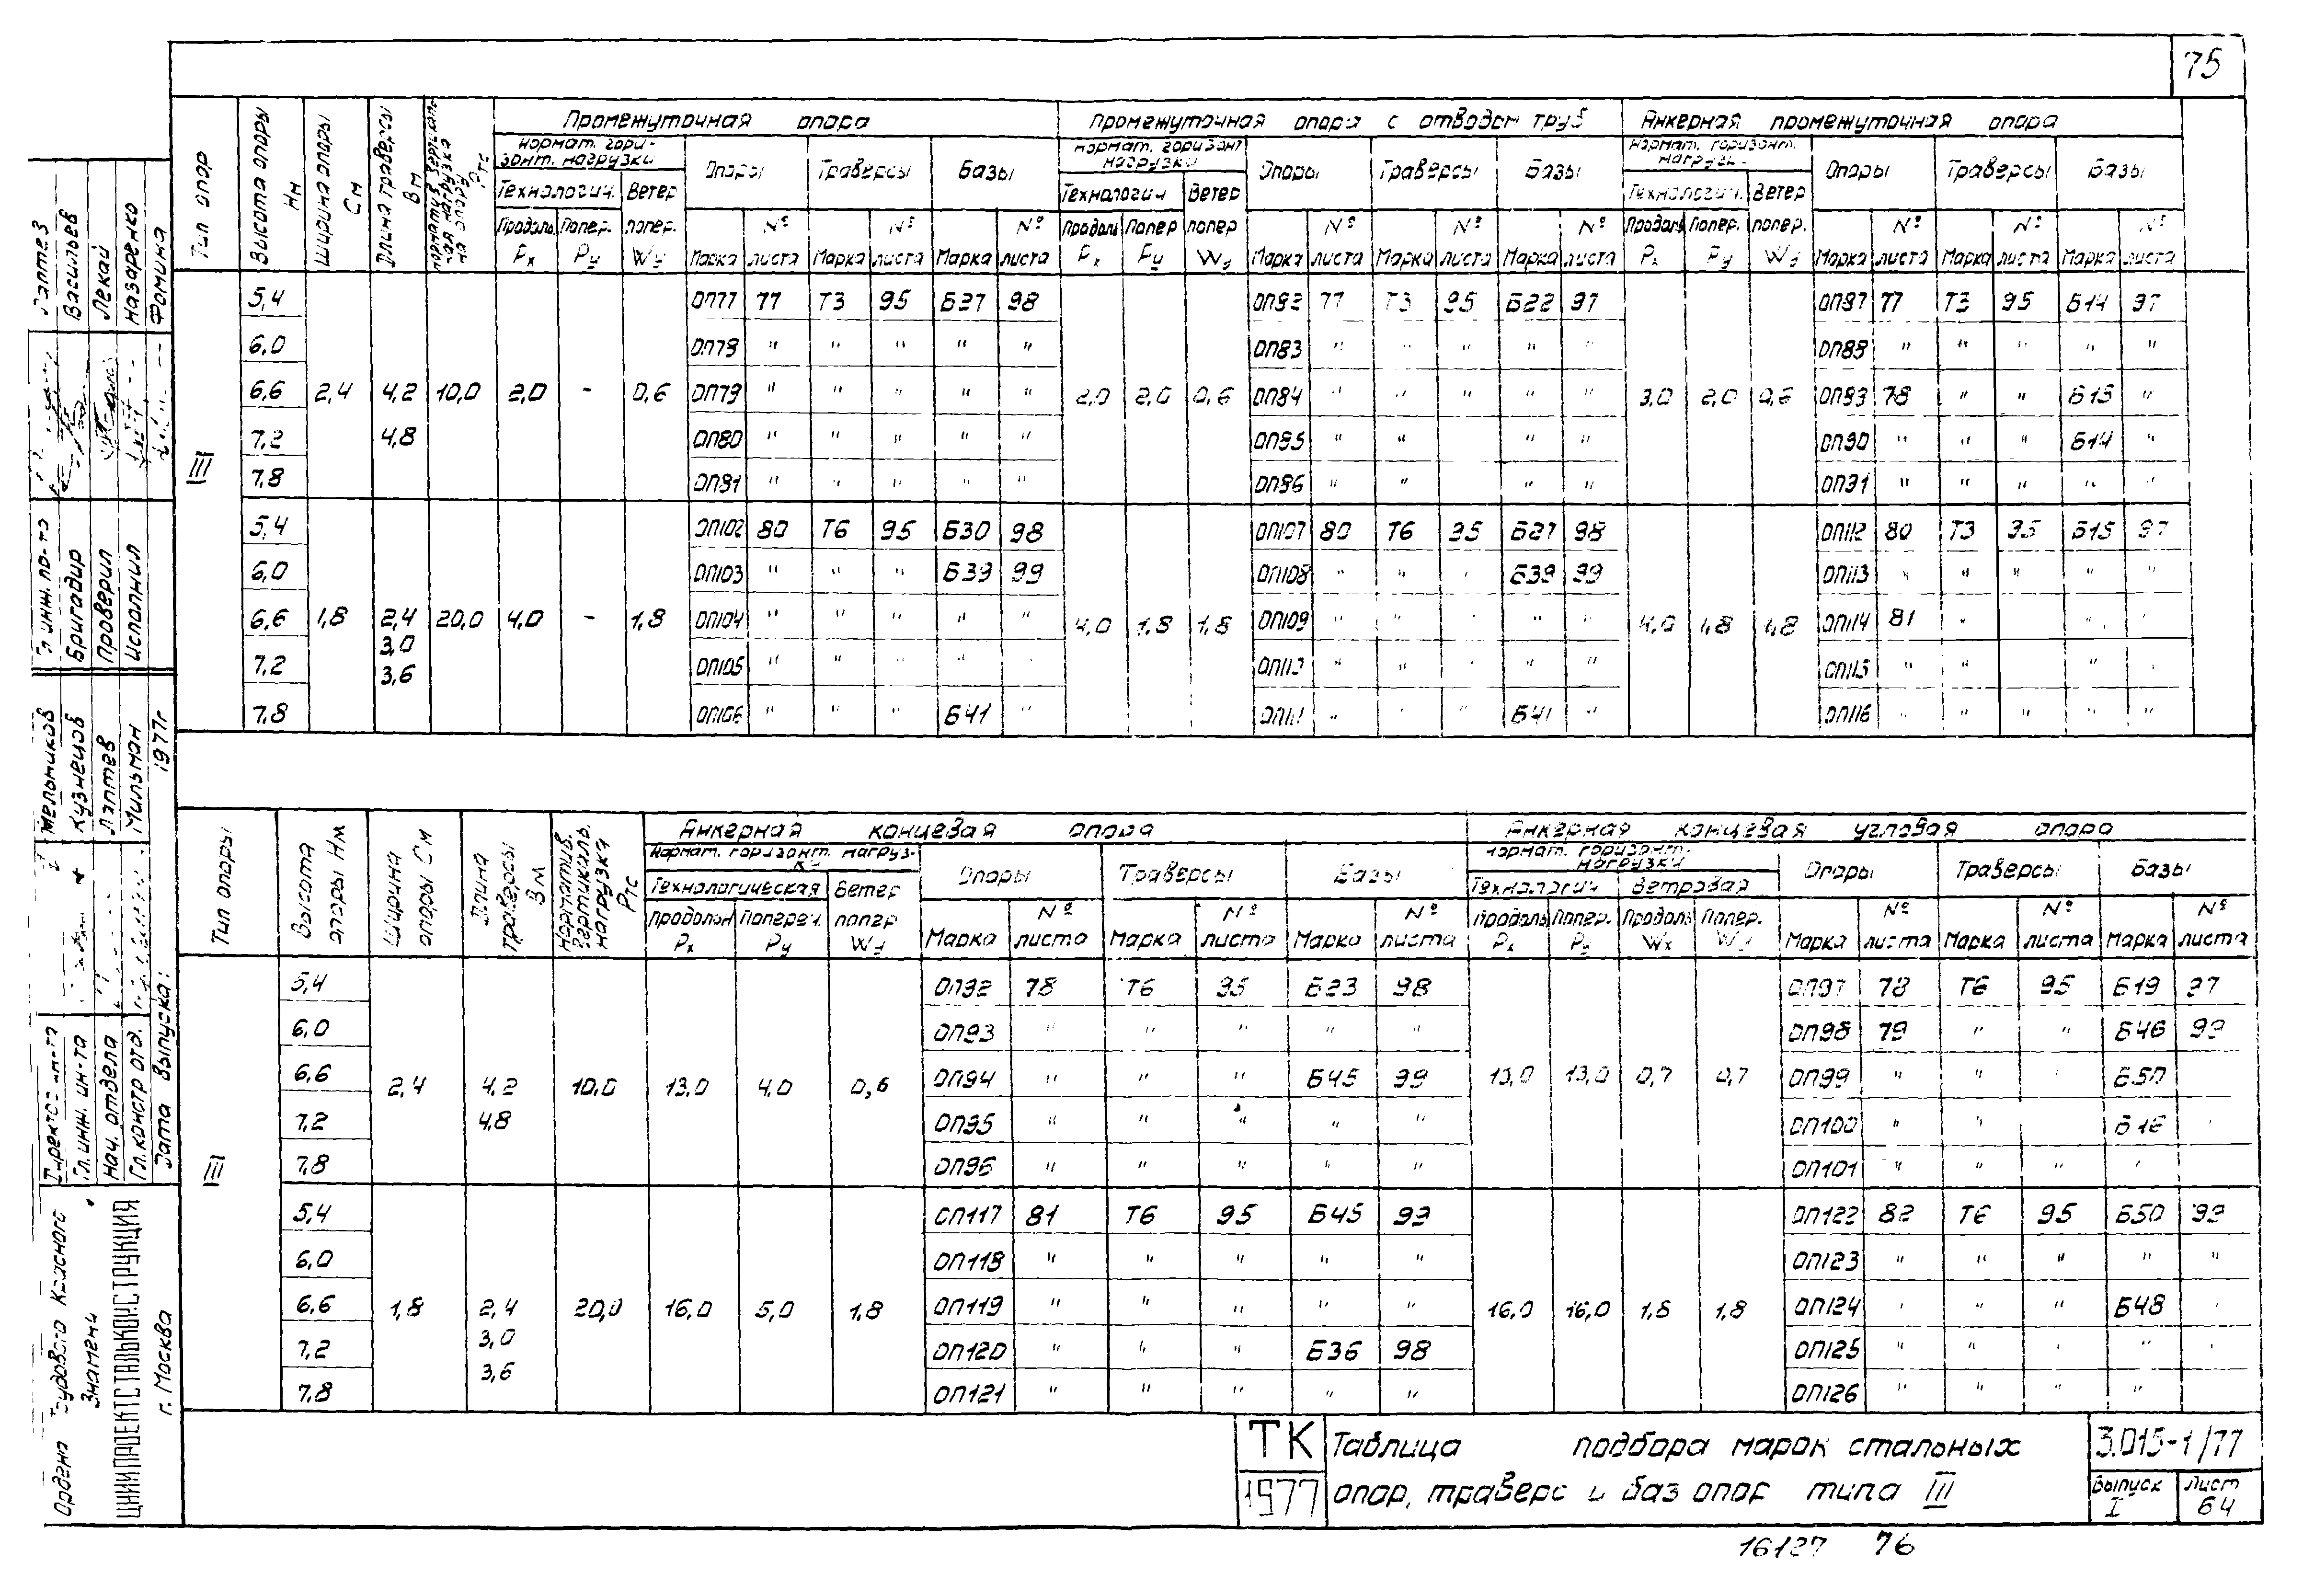 75
Тип опор | Высота опоры Нм | Ширина опоры См | Длина траверсы Вм | Промежуточная опора | Промежуточная опора с отводом труб | Анкерная промежуточная опора
Нормат. гори-зонт. нагрузки | Опоры | Траверсы | Базы | Нормат. горизонт нагрузки | Опоры | Траверсы | Базы | Нормат. горизонт. | Опоры | Траверсы | Базы
Технологич. | Ветер | Технологич | Ветер | Технологич. | Ветер
Продоль | Попер. | попер. | № | № | № | Продоль | Попер | попер | № | № | № | Продоль | Попер. | попер. | № | № | №
Рх | Ру | Wу | Марка | листа | Марка | листа | Марка | листа | Рх | Ру | Wу | Марка | листа | Марка | листа | Марка | листа | Рх | Ру | Wу | Марка | листа | Марка | листа | Марка | листа
5,4 | ОП77 | 77 | Т3 | 95 | Б27 | 98 | ОП82 | 77 | Т3 | 95 | Б22 | 97 | ОП87 | 77 | Т3 | 95 | Б14 | 97
6,0 | ОП78 | " | " | " | " | " | ОП83 | " | " | " | " | " | ОП88 | " | " | " | " | "
III | 6,6 | 2,4 | 4,2 | 10,0 | 2,0 | - | 0,6 | ОП79 | " | " | " | " | " | 2,0 | 2,0 | 0,6 | ОП84 | " | " | " | " | " | 3,0 | 2,0 | 0,6 | ОП89 | 78 | " | " | Б15 | "
7,2 | 4,8 | ОП80 | " | " | " | " | " | ОП85 | " | " | " | " | ОП90 | " | " | " | Б14 | "
7,8 | ОП81 | " | " | " | " | " | ОП86 | " | " | " | " | ОП91 | " | " | " | " | "
5,4 | ОП102 | 80 | Т6 | 95 | Б30 | 98 | ОП107 | 80 | Т6 | 95 | Б27 | 98 | ОП112 | 80 | Т3 | 95 | Б15 | 97
6,0 | ОП103 | " | " | " | Б39 | 99 | ОП108 | " | " | " | Б39 | 99 | ОП113 | " | " | " | " | "
6,6 | 1,8 | 2,4 | 20,0 | 4,0 | - | 1,8 | ОП104 | " | " | " | " | " | 4,0 | 1,8 | 1,8 | ОП109 | " | " | " | " | " | 4,0 | 1,8 | 1,8 | ОП114 | 81 | " | " | "
3,0
7,2 | 3,6 | ОП105 | " | " | " | " | " | " | " | " | " | " | ОП115 | " | " | " | "
7,8 | ОП106 | " | " | " | Б41 | " | ОП111 | " | " | " | Б41 | " | ОП116 | " | " | " | " | "
Тип опоры | Высота опоры Нм | Ширина опоры См | Длина траверсы Вм | Норматив. вертикаль. нагрузка Ртс | Анкерная концевая опора | Анкерная концевая угловая опора
Нормат. горизонт. нагруз-ки | Опоры | Траверсы | Базы | Нормат. горизонт. нагрузки | Опоры | Траверсы | Базы
Технологическая | Ветер | Технологич | Ветровая
Продольн | Попереч. | попер | № | № | № | Продоль | Попер. | Продоль | Попер. | № | № | №
Рх | Ру | Wу | Марка | листа | Марка | листа | Марка | листа | Рх | Ру | Wх | Wу | Марка | листа | Марка | листа | Марка | листа
5,4 | ОП92 | 78 | Т6 | 95 | Б23 | 98 | ОП97 | 78 | Т6 | 95 | Б19 | 97
6,0 | ОП93 | " | " | " | " | " | ОП98 | 79 | " | " | Б46 | 99
6,6 | 2,4 | 4,2 | 10,0 | 13,0 | 4,0 | 0,6 | ОП94 | " | " | " | Б45 | 99 | 13,0 | 13,0 | 0,7 | 0,7 | ОП99 | " | " | " | Б50
7,2 | 4,8 | ОП95 | " | " | " | " | " | ОП100 | " | " | Б16 | "
III | 7,8 | ОП96 | " | " | " | " | " | ОП101 | " | " | " | "
5,4 | ОП117 | 81 | Т6 | 95 | Б45 | 99 | ОП122 | 82 | Т6 | 95 | Б50 | 99
6,0 | ОП118 | " | " | " | " | " | ОП123 | " | " | " | " | "
6,6 | 1,8 | 2,4 | 20,0 | 16,0 | 5,0 | 1,8 | ОП119 | " | " | " | " | " | 16,0 | 16,0 | 1,8 | 1,8 | ОП124 | " | " | " | Б48 | "
7,2 | 3,0 | ОП120 | " | " | " | Б36 | 98 | ОП125 | " | " | " | " | "
7,8 | 3,6 | ОП121 | " | " | " | " | " | ОП126 | " | " | " | "
ТК | Таблица подбора марок стальных | 3.015-1/77
1977 | опор, траверс и баз опор типа III | Выпуск I | Лист 64
16127 76
Гл инж. пр-та
Бригадир Васильев
Проверил Лекай
Исполнил Назаренко
Фомина
Мельников
Гл.инж. ин-та Кузнецов
Нач. отдела Лаптев
Гл.констр отд. Мильман
Дата выпуска: 1977г
Ордена Трудового Красного
Знамени
ЦНИИПРОЕКТСТАЛЬКОНСТРУКЦИЯ
г. Москва